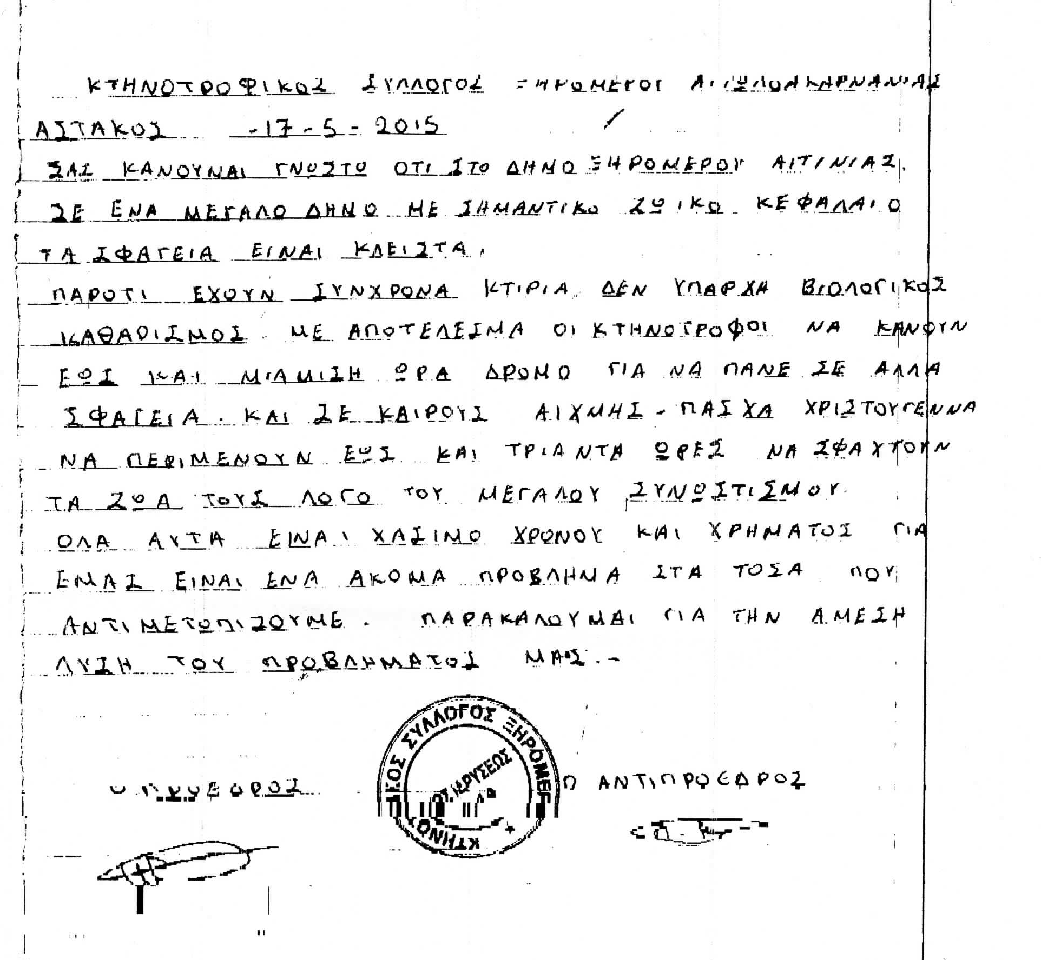 ΚΤΗΝΟΤΡΟΦΙΚΟΣ ΣΥΛΛΟΓΟΣ ΞΗΡΟΜΕΡΟΥ ΑΙΤΩΛΟΑΚΑΡΝΑΝΙΑΣ
ΑΣΤΑΚΟΣ -17-5-2015
ΣΑΣ ΚΑΝΟΥΝΑΙ ΓΝΩΣΤΟ ΟΤΙ ΣΤΟ ΔΗΜΟ ΞΗΡΟΜΕΡΟΥ ΑΙΤΙΝΙΑΣ.
ΣΕ ΕΝΑ ΜΕΓΑΛΟ ΔΗΜΟ ΜΕ ΣΗΜΑΝΤΙΚΟ ΖΩΙΚΟ ΚΕΦΑΛΑΙΟ
ΤΑ ΣΦΑΓΕΙΑ ΕΙΝΑΙ ΚΛΕΙΣΤΑ.
ΠΑΡΟΤΙ ΕΧΟΥΝ ΣΥΝΧΡΟΝΑ ΚΤΙΡΙΑ ΔΕΝ ΥΠΑΡΧΑ ΒΙΟΛΟΓΙΚΟΣ
ΚΑΘΑΡΙΣΜΟΣ ΜΕ ΑΠΟΤΕΛΕΣΜΑ ΟΙ ΚΤΗΝΟΤΡΟΦΟΙ ΝΑ ΚΑΝΟΥΝ
ΕΩΣ ΚΑΙ ΜΙΑΜΙΣΗ ΩΡΑ ΔΡΟΜΟ ΓΙΑ ΝΑ ΠΑΝΕ ΣΕ ΑΛΛΑ
ΣΦΑΓΕΙΑ. ΚΑΙ ΣΕ ΚΑΙΡΟΥΣ ΑΙΧΜΗΣ - ΠΑΣΧΑ ΧΡΙΣΤΟΥΓΕΝΝΑ
ΝΑ ΠΕΡΙΜΕΝΟΥΝ ΕΩΣ ΚΑΙ ΤΡΙΑΝΤΑ ΩΡΕΣ ΝΑ ΣΦΑΧΤΟΥΝ
ΤΑ ΖΩΑ ΤΟΥΣ ΛΟΓΟ ΤΟΥ ΜΕΓΑΛΟΥ ΣΥΝΩΣΤΙΣΜΟΥ
ΟΛΑ ΑΥΤΑ ΕΙΝΑΙ ΧΑΣΙΜΟ ΧΡΟΝΟΥ ΚΑΙ ΧΡΗΜΑΤΟΣ ΓΙΑ
ΕΜΑΣ ΕΙΝΑΙ ΕΝΑ ΑΚΟΜΑ ΠΡΟΒΛΗΜΑ ΣΤΑ ΤΟΣΑ ΠΟΥ
ΑΝΤΙΜΕΤΩΠΙΖΟΥΜΕ. ΠΑΡΑΚΑΛΟΥΜΑΙ ΓΙΑ ΤΗΝ ΑΜΕΣΗ
ΛΥΣΗ ΤΟΥ ΠΡΟΒΛΗΜΑΤΟΣ ΜΑΣ.-
ΣΥΛΛΟΓΟΣ ΞΗΡΟΜΕΡ
ΙΔΡΥΣΕΩΣ
Ο ΠΡΟΕΔΡΟΣ Ο ΑΝΤΙΠΡΟΕΔΡΟΣ